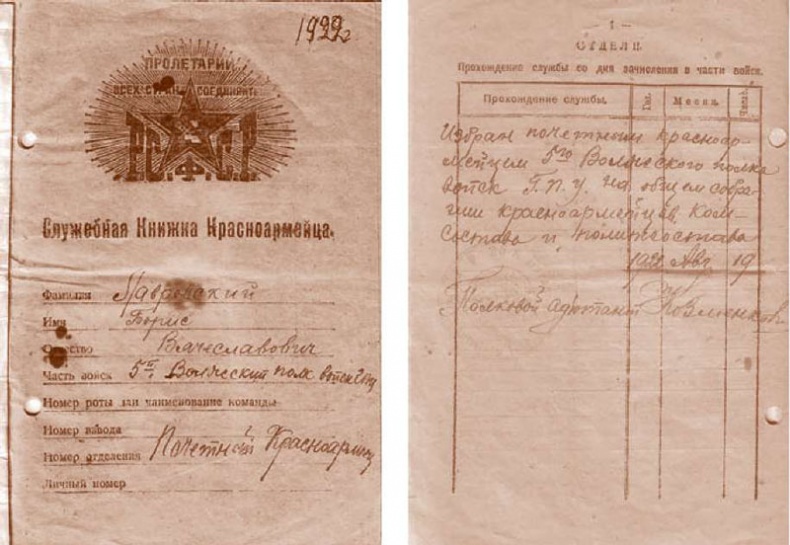 1922г
ПРОЛЕТАРИИ
ВСЕХ СТРАН СОЕДИНЯЙТЕСЬ
Р.С.Ф.С.Р.
Служебная Книжка Красноармейца.
Фамилия Лавровский
Имя Борис
Отчество Вячеславович
Часть войск 5й Волжский полк войск Гпу
Номер роты или наименование команды
Номер взвода
Номер отделения Почетный Красноармеец
Личный номер
— 1 —
ОТДЕЛ II.
Прохождение службы со дня зачисления в части войск.
Прохождение службы. Год. Месяц. Число.
Избран почетным красноар-
мейцем 5го Волжского полка
войск Г.П.У. на общем собра-
нии красноармейцев, Ком-
состава и политсостава
1922 Авг 19
Полковой адъютант